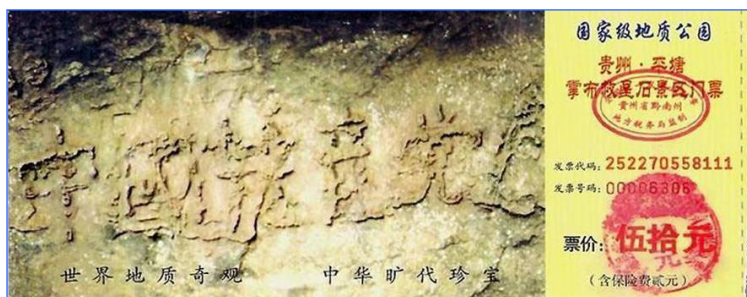 中国共产党
世界地质奇观 中华旷代珍宝
国家级地质公园
贵州·平塘
掌布救星石景区门票
贵州省黔南州
地方税务局监制
发票代码: 252270558111
发票号码: 00006306
票价: 伍拾元
(含保险费贰元)